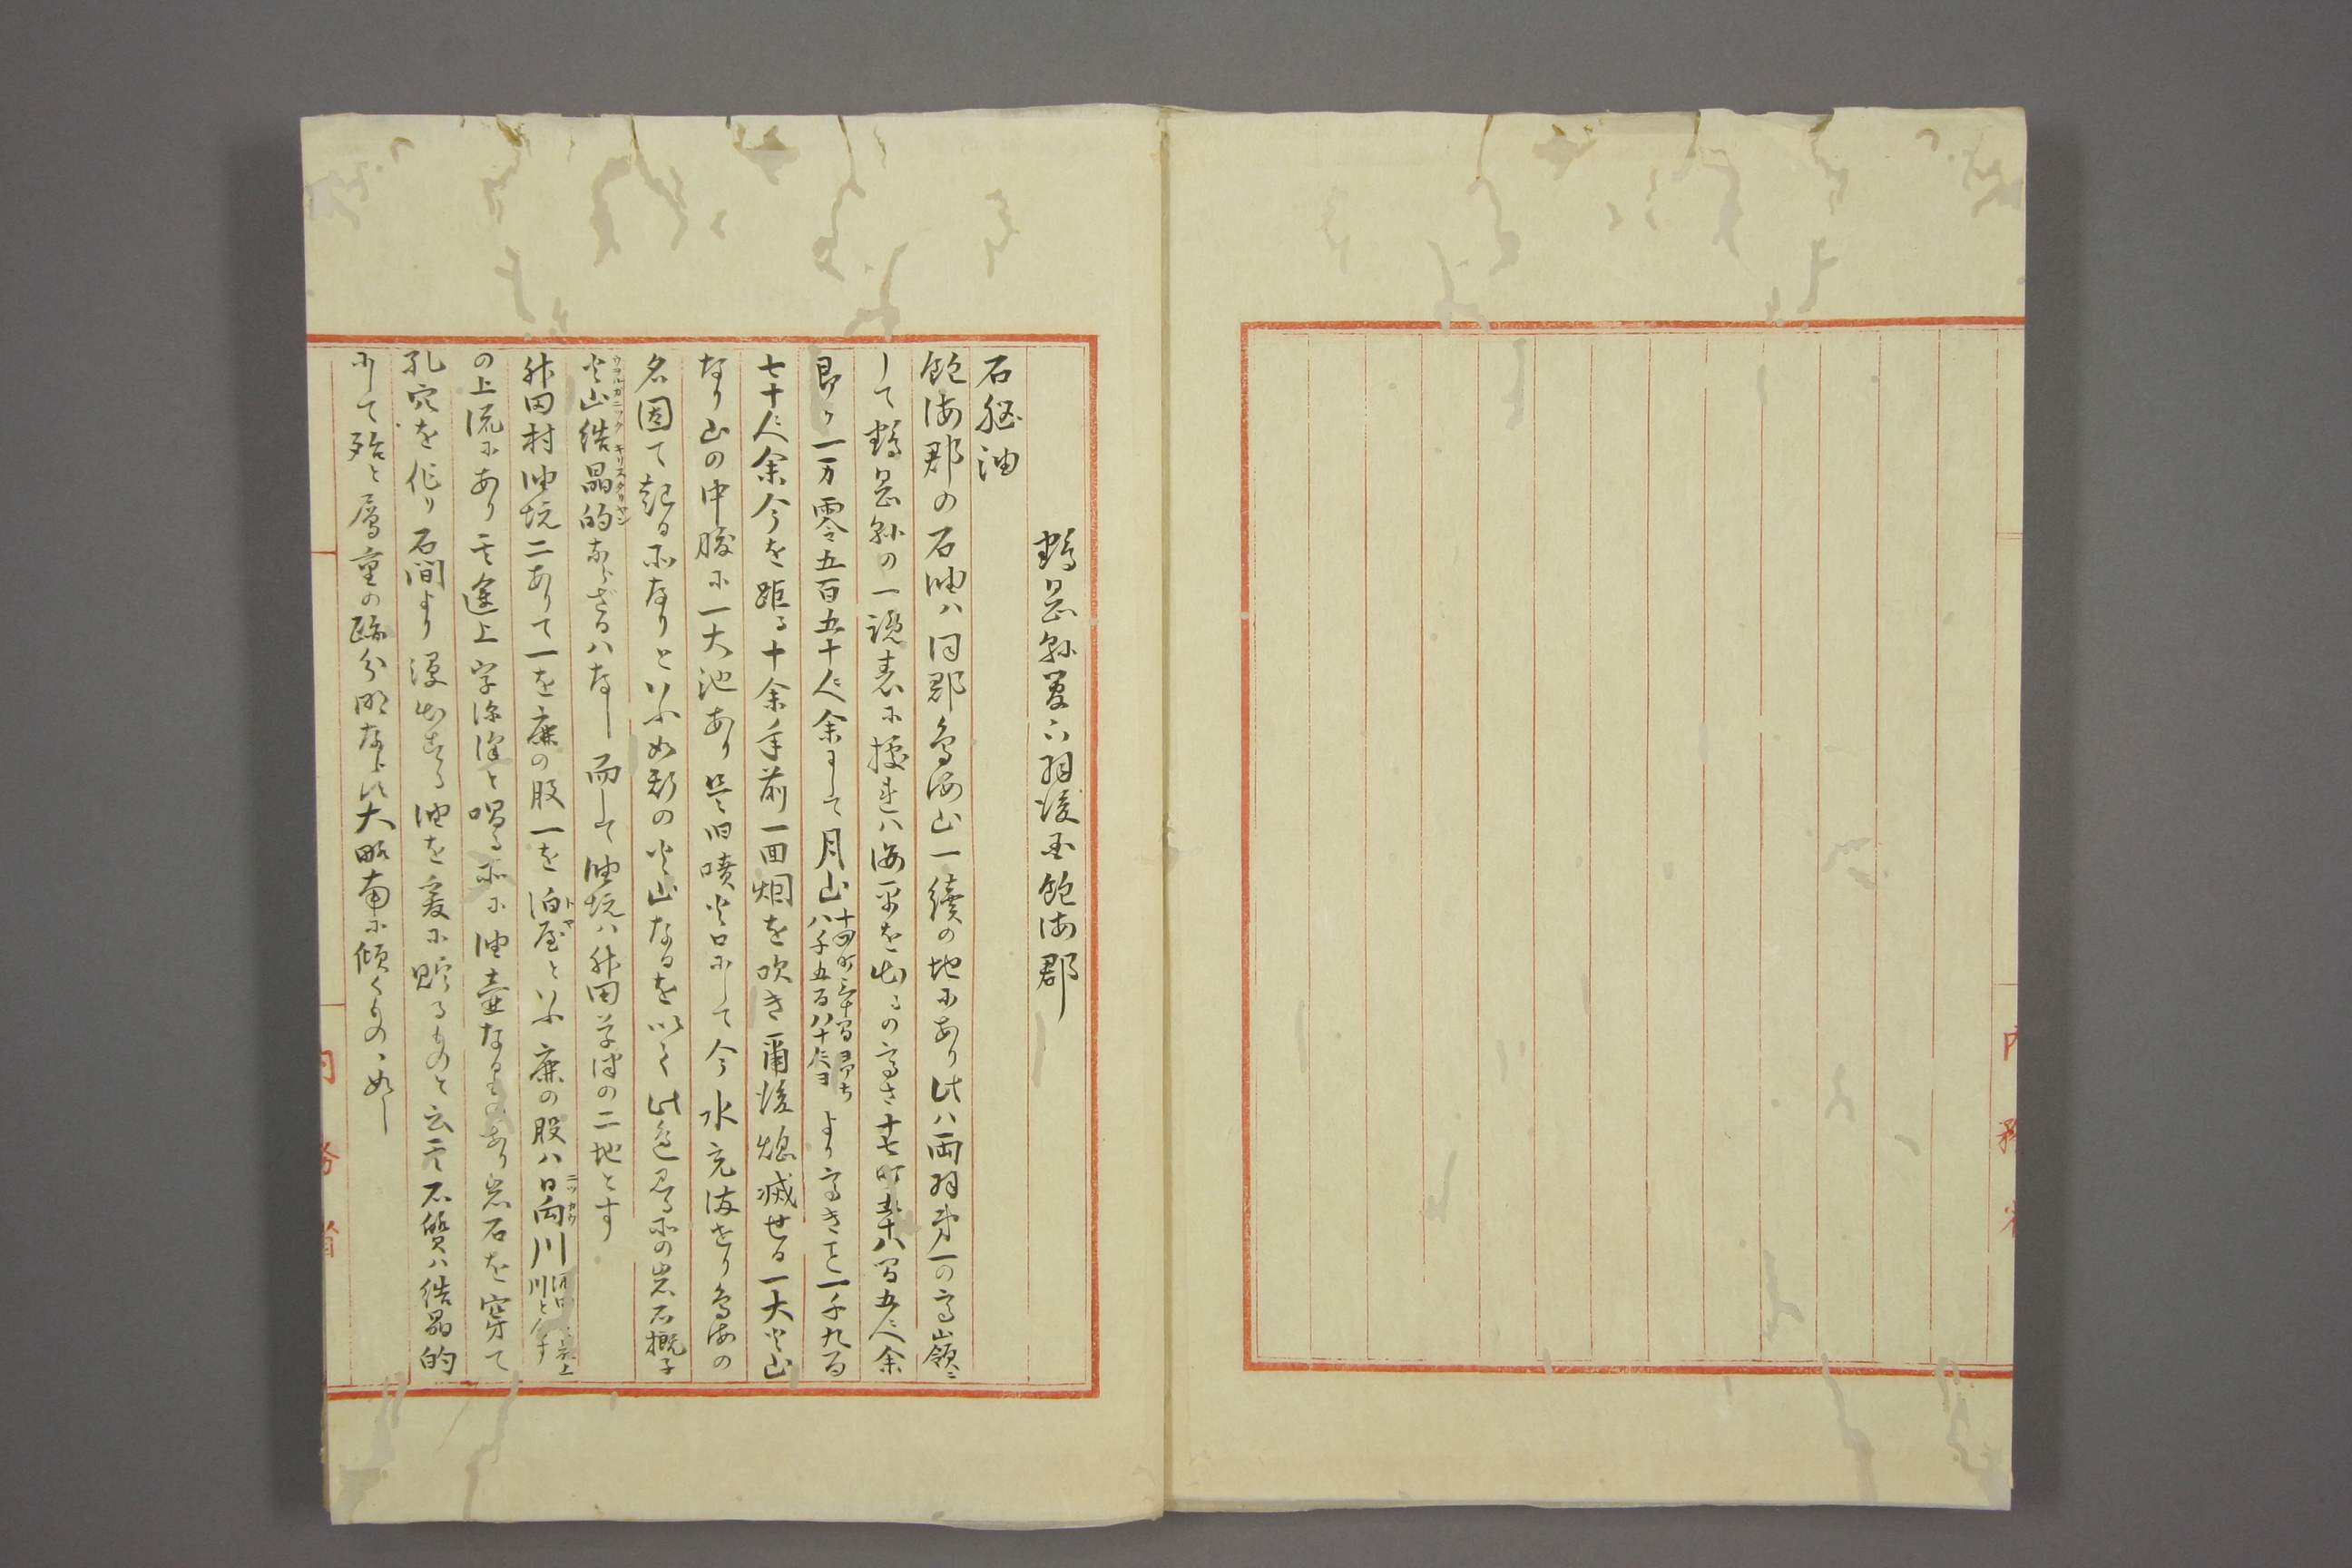 鶴岡縣管下羽後国飽海郡
石脳油
飽海郡の石油ハ同郡鳥海山一續の地にあり此ハ両羽第一の高嶺に
して鶴岡縣の一覧表に據れハ海平を出るの高さ十七町 八間五尺余
即ケ一万零五百五十尺余にして月山十四町三十間即ち八千五百八十尺ヨより高きこと一千九百
七十尺余今を距る十余年前一面烟を吹き爾後熄滅せる一大火山
なり山の中腹に一大池あり是旧噴火口にして今水充満せり鳥海の
名因て起る所なりといふ如斯の火山なるを以て此邉見る所の岩石概子
火山結晶的ウヲルガニック キリスタリヤンならざるハなし而して油坑ハ升田草津の二地とす
升田村油坑二ありて一を鹿の股一を泊屋トヤといふ鹿の股ハ日向川ニッカウ 川とす
の上流にあり其途上字 と唱る所に油壷なるものあり岩石を穿て
孔穴を作り石間より浸出する油を爰に貯るものと云元石質ハ結晶的
にして殆と層重の跡分明ならす大略南に傾くものゝ如し
内務省
内務省